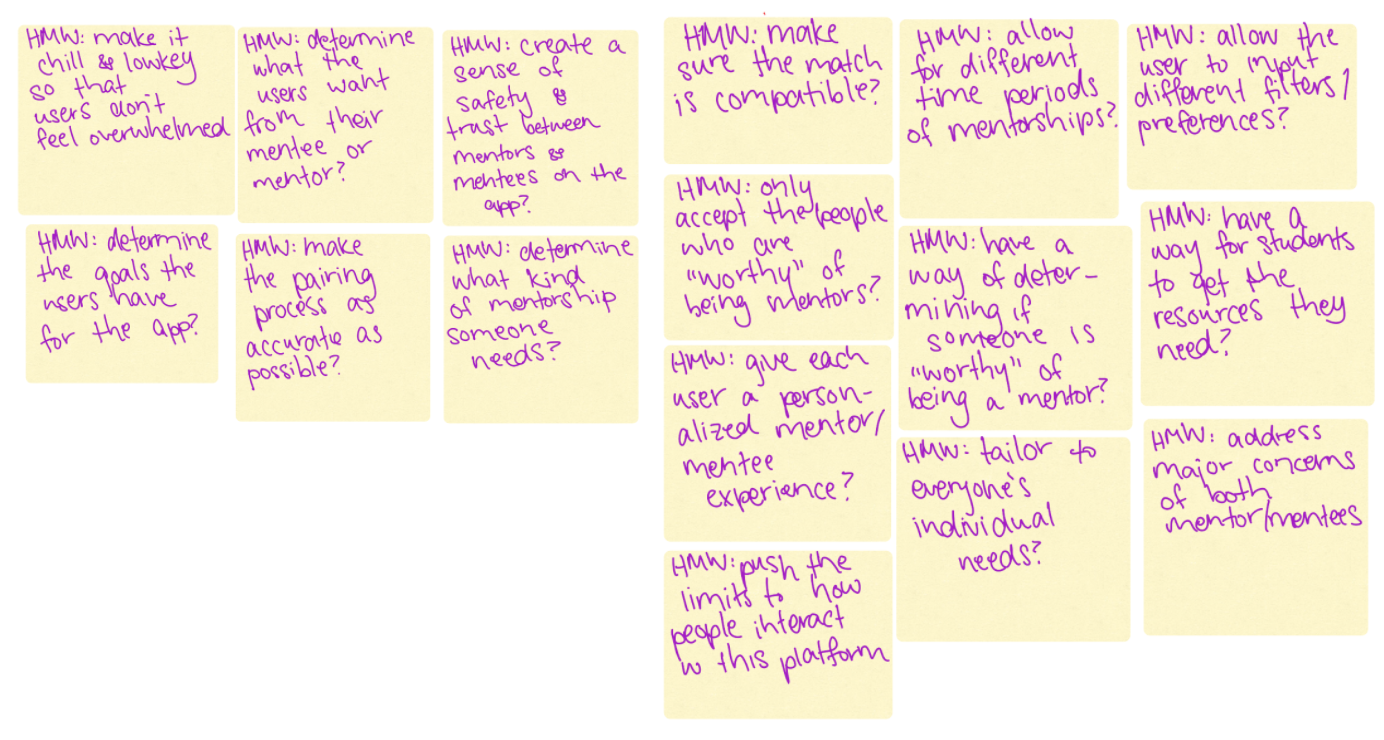 HMW: make it
chill & lowkey
so that
users don't
feel overwhelmed
HMW: determine
what the
users want
from their
mentee or
mentor?
HMW: create a
sense of
safety &
trust between
mentors &
mentees on the
app?
HMW: determine
the goals the
users have
for the app?
HMW: make
the pairing
process as
accurate as
possible?
HMW: determine
what kind
of mentorship
someone
needs?
HMW: make
sure the match
is compatible?
HMW: allow
for different
time periods
of mentorships?
HMW: allow the
user to input
different filters/
preferences?
HMW: only
accept the people
who are
"worthy" of
being mentors?
HMW: have a
way of deter-
mining if
someone is
"worthy" of
being a mentor?
HMW: have a
way for students
to get the
resources they
need?
HMW: give each
user a person-
alized mentor/
mentee
experience?
HMW: tailor to
everyone's
individual
needs?
HMW: address
major concerns
of both
mentor/mentees
HMW: push the
limits to how
people interact
w this platform